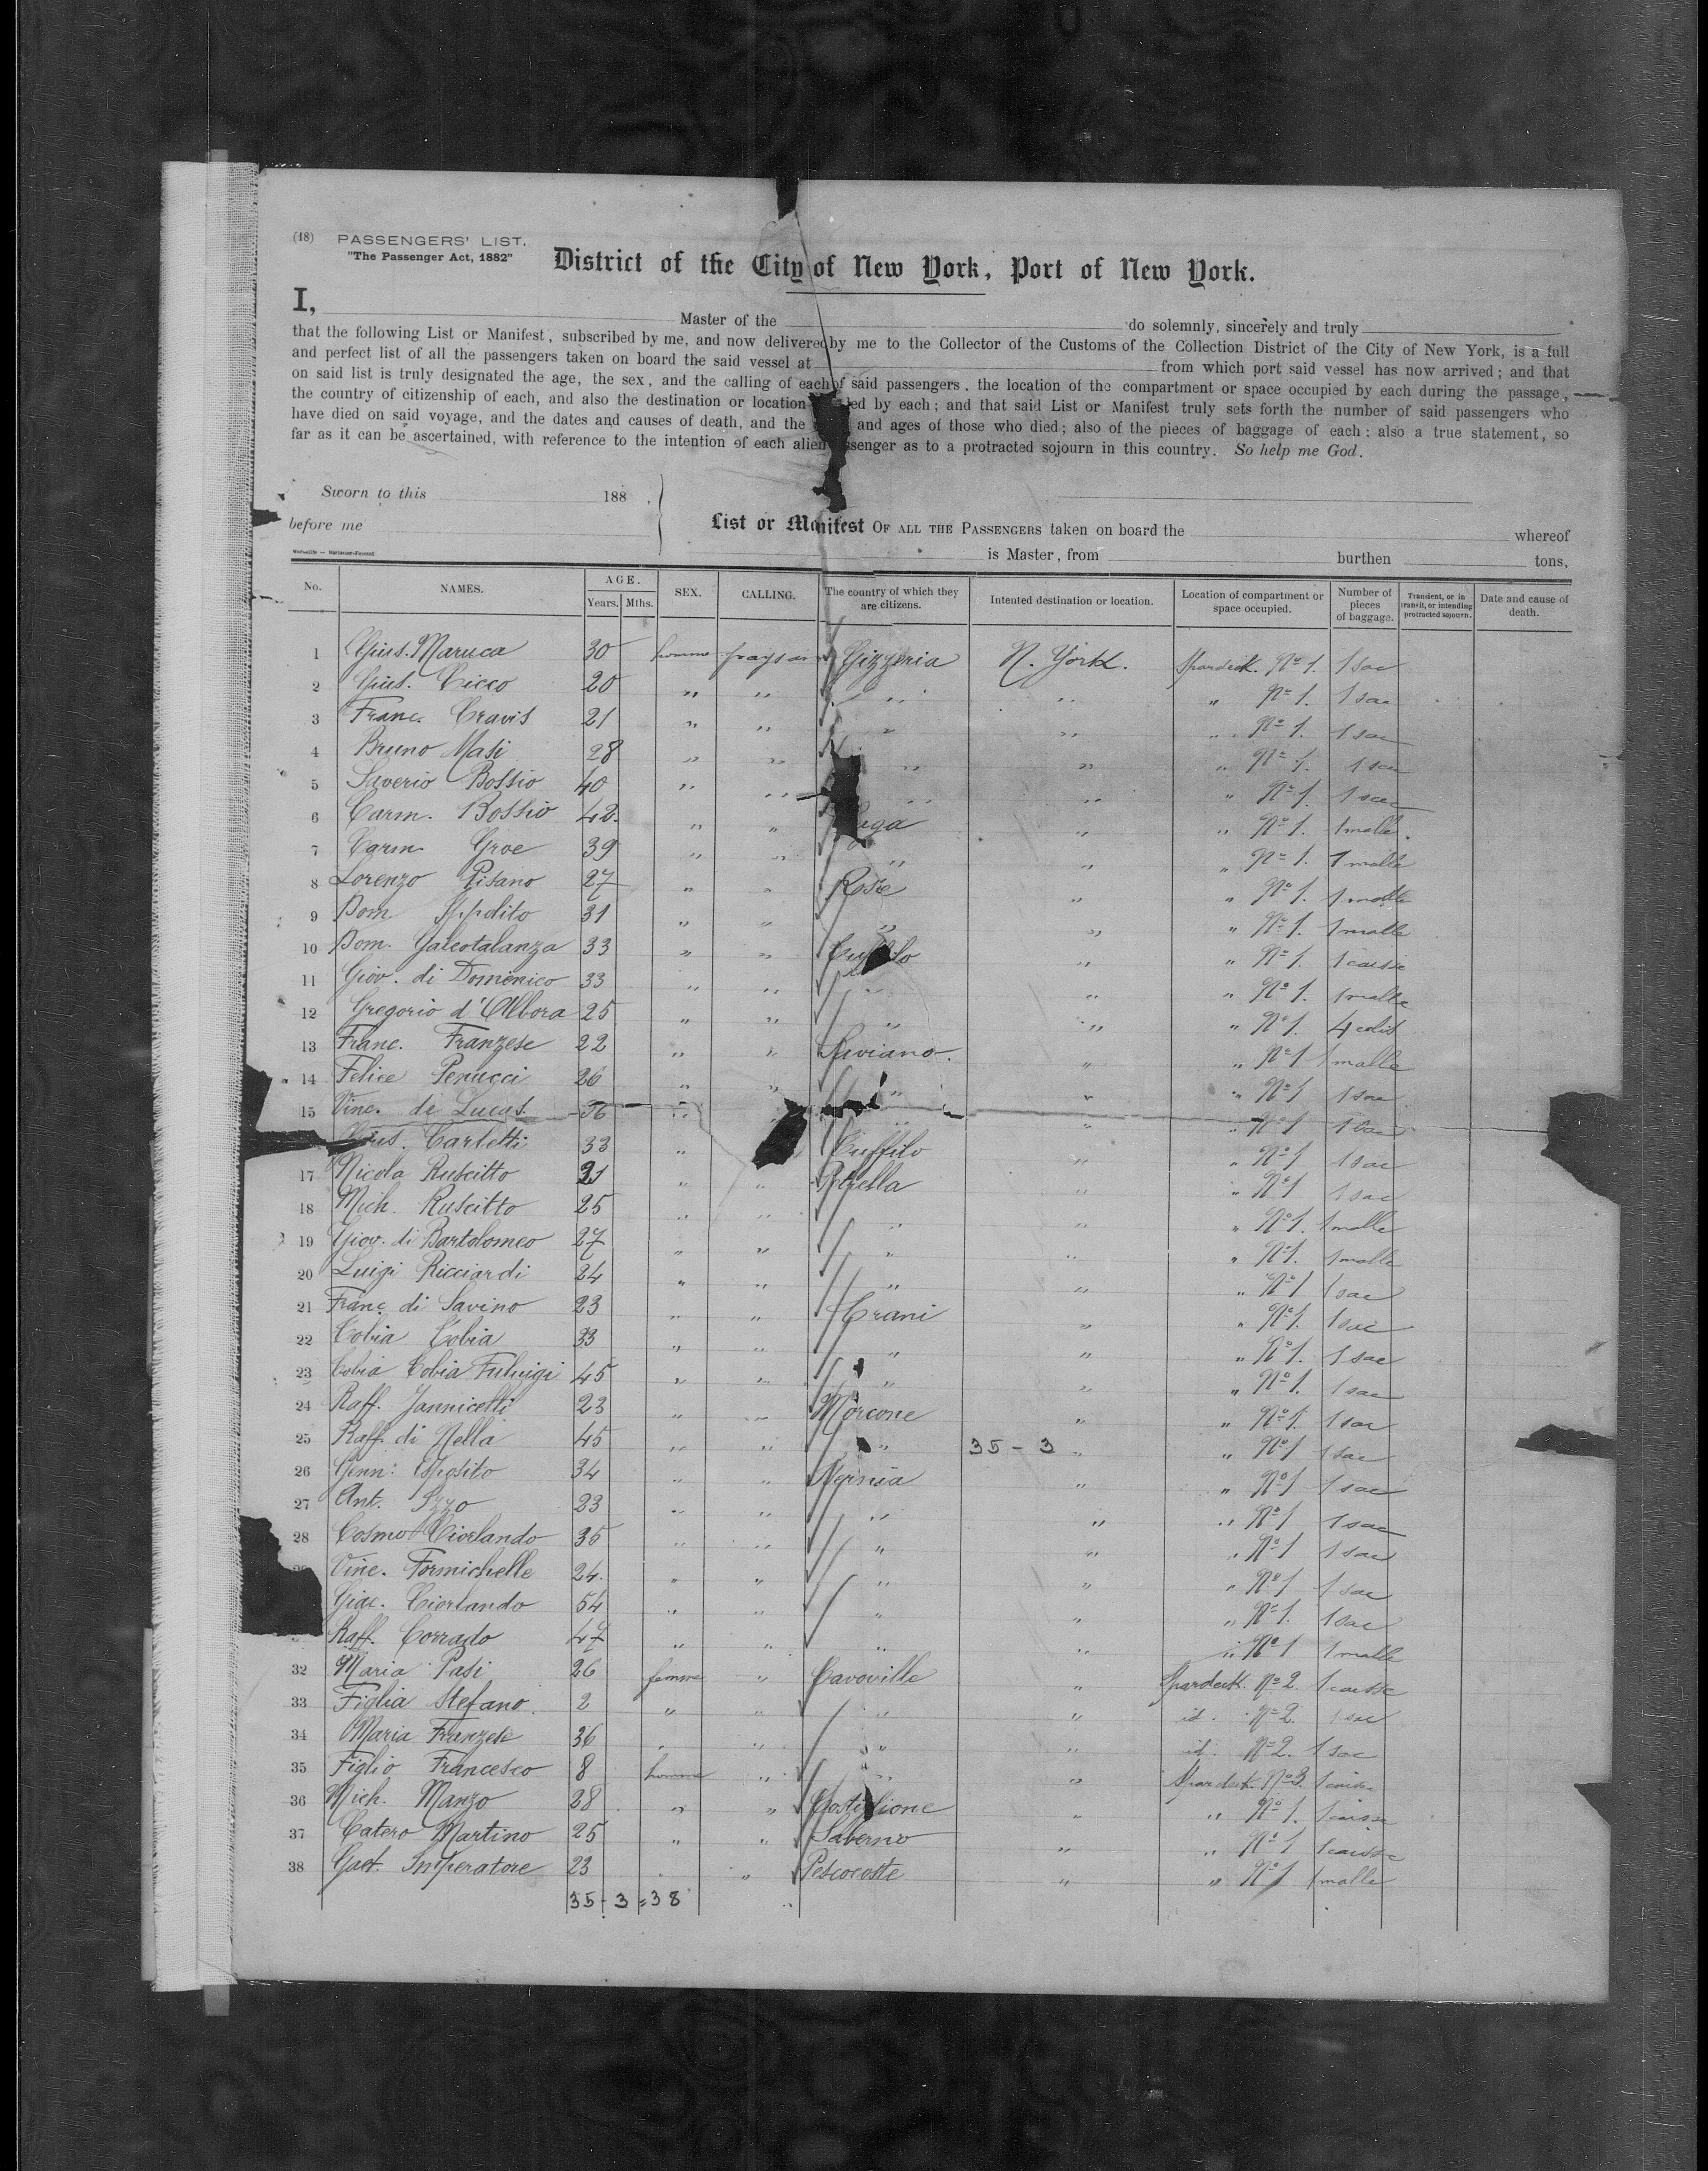 (18) PASSENGERS' LIST.
"The Passenger Act, 1882"
District of the City of New York, Port of New York.
I, Master of the do solemnly, sincerely and truly
that the following List or Manifest, subscribed by me, and now delivered by me to the Collector of the Customs of the Collection District of the City of New York, is a full
and perfect list of all the passengers taken on board the said vessel at from which port said vessel has now arrived; and that
on said list is truly designated the age, the sex, and the calling of each of said passengers, the location of the compartment or space occupied by each during the passage,
the country of citizenship of each, and also the destination or location ed by each; and that said List or Manifest truly sets forth the number of said passengers who
have died on said voyage, and the dates and causes of death, and the and ages of those who died; also of the pieces of baggage of each: also a true statement, so
far as it can be ascertained, with reference to the intention of each alien ssenger as to a protracted sojourn in this country. So help me God.
Sworn to this 188 .
before me
List or Manifest OF ALL THE PASSENGERS taken on board the whereof
is Master, from burthen tons,
No. NAMES. AGE. Years. Mths. SEX. CALLING. The country of which they are citizens. Intented destination or location. Location of compartment or space occupied. Number of pieces of baggage. Transient, or in transit, or intending protracted sojourn. Date and cause of death.
1 Gius. Maruca 30 homme paysan Gizzeria N. York. Spardeck. Nº 1. 1 sac
2 Gius. Cicco 20 " " " " " Nº 1. 1 sac
3 Franc. Cravis 21 " " " " " Nº 1. 1 sac
4 Bruno Masi 28 " " " " " Nº 1. 1 sac
5 Saverio Bossio 40 " " " " " Nº 1. 1 sac
6 Carm. Bossio 42. " " " " Nº 1. 1 malle.
7 Carm. Groe 39 " " " " " Nº 1. 1 malle
8 Lorenzo Pisano 27 " " Rose " " Nº 1. 1 malle
9 Dom. Ippolito 31 " " " " " Nº 1. 1 malle
10 Dom. Galeotalanza 33 " " " " Nº 1. 1 caisse
11 Giov. di Domenico 33 " " " " " Nº 1. 1 malle
12 Gregorio d'Albora 25 " " " " " Nº 1. 4 colis
13 Franc. Franzese 22 " " Saviano. " " Nº 1 1 malle
14 Felice Perucci 26 " " " " " Nº 1 1 sac
15 Vinc. de Lucas 36 " " " " Nº 1 1 sac
Gius. Carletti 33 " Cuffilo " " Nº 1 1 sac
17 Nicola Ruscitto 31 " " Petrella " " Nº 1 1 sac
18 Mich. Ruscitto 25 " " " " " Nº 1. 1 malle
19 Giov. di Bartolomeo 27 " " " " " Nº 1. 1 malle
20 Luigi Ricciardi 24 " " " " " Nº 1 1 sac
21 Franc. di Savino 23 " " Trani " " Nº 1. 1 sac
22 Tobia Tobia 33 " " " " " Nº 1. 1 sac
23 Tobia Tobia Fuluigi 45 " " " " " Nº 1. 1 sac
24 Raff. Jannicelli 23 " " Morcone " " Nº 1. 1 sac
25 Raff. di Nella 45 " " " 35 - 3 " " Nº 1 1 sac
26 Genn: Esposito 34 " " " " Nº 1 1 sac
27 Ant. Izzo 23 " " " " " Nº 1 1 sac
28 Cosmo Ciorlando 35 " " " " " Nº 1 1 sac
Vinc. Formichelle 24. " " " " " Nº 1 1 sac
Giac. Ciorlando 54 " " " " " Nº 1. 1 sac
Raff. Corrado 47 " " " " " Nº 1 1 malle
32 Maria Pasi 26 femme " Cavoville " Spardeck. Nº 2. 1 caisse
33 Figlia Stefano. 2 " " " " id. Nº 2. 1 sac
34 Maria Franzese 36 " " " " id. Nº 2. 1 sac
35 Figlio Francesco 8 homme " " " Spardeck Nº 3. 1 caisse
36 Mich. Manzo 28 " " Castiglione " " Nº 1. 1 caisse
37 Catero Martino 25 " " Salerno " " Nº 1 1 caisse
38 Gaet. Imperatore 23 " " Pescocoste " " Nº 1 1 malle
35 - 3 = 38